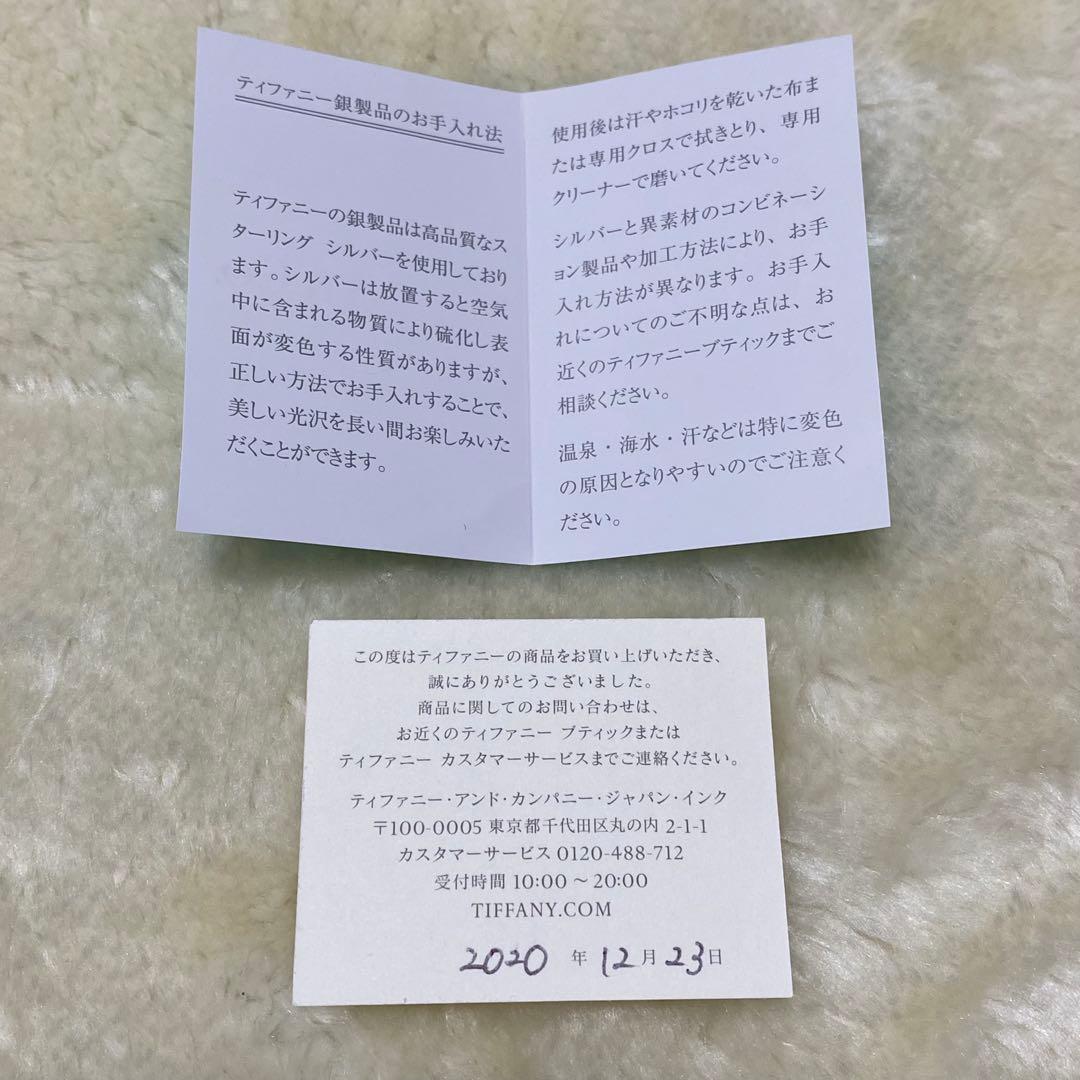 ティファニー銀製品のお手入れ法
ティファニーの銀製品は高品質なス
ターリング シルバーを使用しており
ます。シルバーは放置すると空気
中に含まれる物質により硫化し表
面が変色する性質がありますが、
正しい方法でお手入れすることで、
美しい光沢を長い間お楽しみいた
だくことができます。
使用後は汗やホコリを乾いた布ま
たは専用クロスで拭きとり、専用
クリーナーで磨いてください。
シルバーと異素材のコンビネーシ
ョン製品や加工方法により、お手
入れ方法が異なります。お手入
れについてのご不明な点は、お
近くのティファニーブティックまでご
相談ください。
温泉・海水・汗などは特に変色
の原因となりやすいのでご注意く
ださい。
この度はティファニーの商品をお買い上げいただき、
誠にありがとうございました。
商品に関してのお問い合わせは、
お近くのティファニー ブティックまたは
ティファニー カスタマーサービスまでご連絡ください。
ティファニー・アンド・カンパニー・ジャパン・インク
〒100-0005 東京都千代田区丸の内 2-1-1
カスタマーサービス 0120-488-712
受付時間 10:00 〜 20:00
TIFFANY.COM
2020 年 12 月 23 日